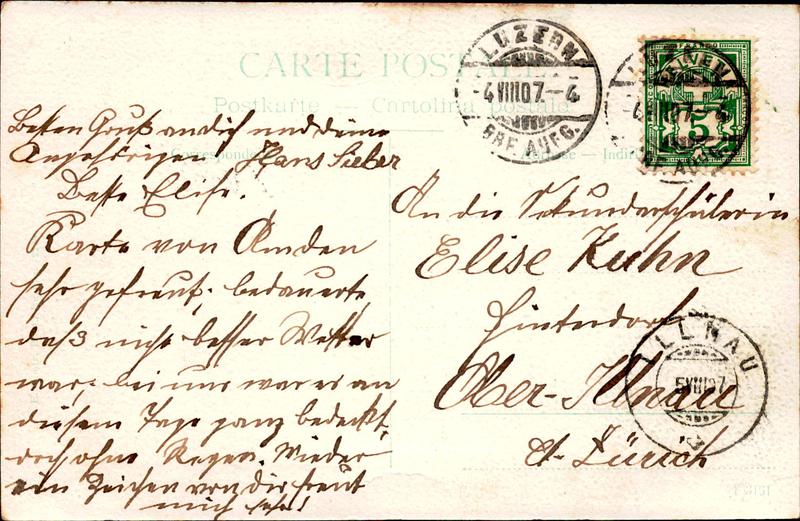 CARTE POSTALE
Postkarte — Cartolina postale
Correspondenz
Adresse — Indir
LUZERN
-4VIII07-4
BRF. AUFG.
FRANCO
5
LUZERN
VIII07-4
BRF. AUFG.
Besten Gruß an dich und deine
Angehörigen Hans Sieber
Beste Elise.
Karte von Amden
sehr gefreut; bedauerte,
daß nicht besser Wetter
war; bei uns war es an
diesem Tage ganz bedeckt,
doch ohne Regen. Wieder
ein Zeichen von dir freut
mich sehr!
An die Sekundarschülerin
Elise Kuhn
Hinterdorf
Ober-Illnau
Ct. Zürich
ILLNAU
5VIII07